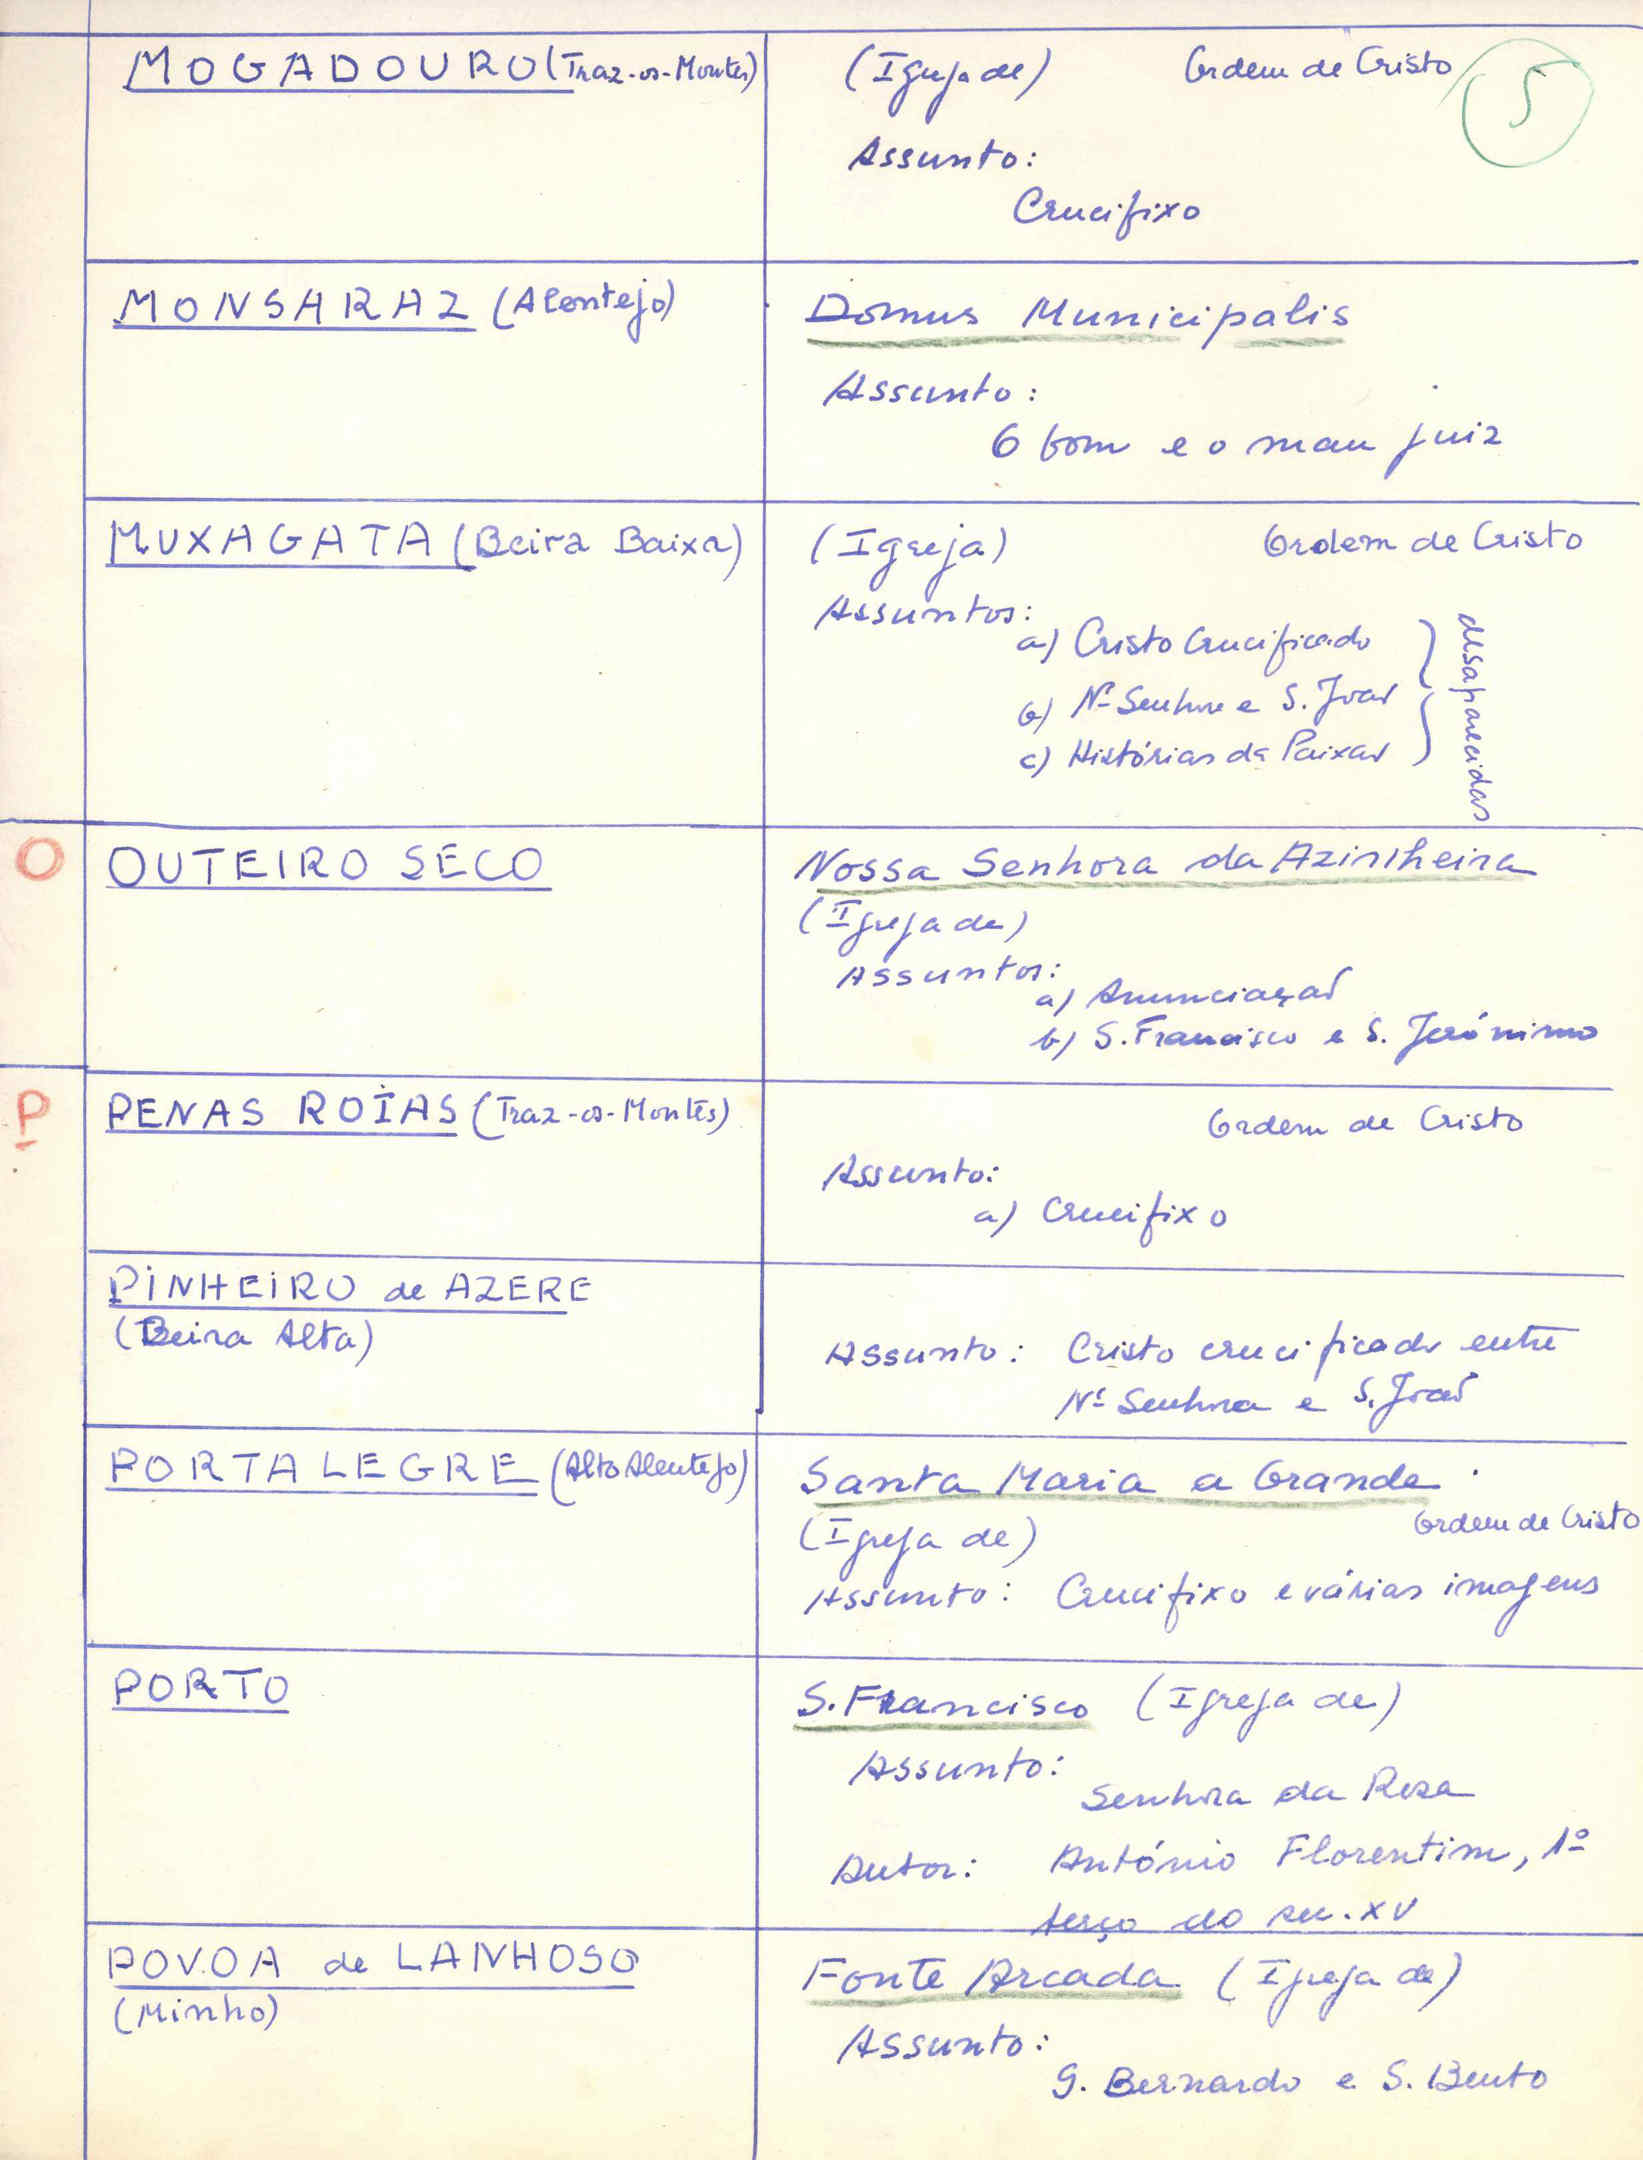 MOGADOURO (Traz-os-Montes) (Igreja de) Ordem de Cristo 5
Assunto:
Crucifixo
MONSARAZ (Alentejo) Domus Municipalis
Assunto:
O bom e o mau juiz
MUXAGATA (Beira Baixa) (Igreja) Ordem de Cristo
Assuntos:
a) Cristo Crucificado
b) Nª Senhora e S. João
c) Histórias da Paixão
desaparecidas
O OUTEIRO SECO Nossa Senhora da Azinheira
(Igreja de)
Assuntos:
a) Anunciação
b) S. Francisco e S. Jerónimo
P PENAS ROÍAS (Traz-os-Montes) Ordem de Cristo
Assunto:
a) Crucifixo
PINHEIRO de AZERE
(Beira Alta)
Assunto: Cristo crucificado entre
Nª Senhora e S. João
PORTALEGRE (Alto Alentejo) Santa Maria a Grande
(Igreja de) Ordem de Cristo
Assunto: Crucifixo e várias imagens
PORTO S. Francisco (Igreja de)
Assunto:
Senhora da Rosa
Autor: António Florentim, 1º
terço do sec. XV
POVOA de LANHOSO Fonte Arcada (Igreja de)
(Minho)
Assunto:
S. Bernardo e S. Bento